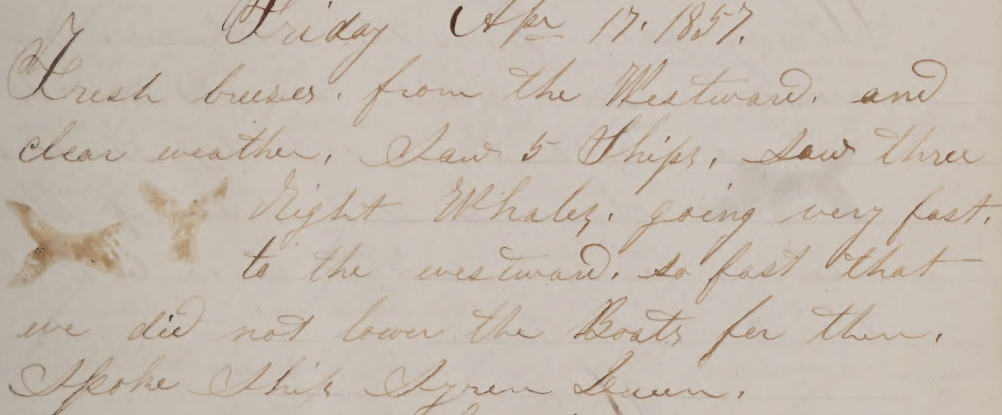 Friday Apr 17. 1857.
Fresh breeses. from the Westward. and
clear weather. Saw 5 Ships. saw three
Right Whales. going very fast.
to the westward. so fast that
we did not lower the Boats for them.
Spoke Ship Syren Queen.